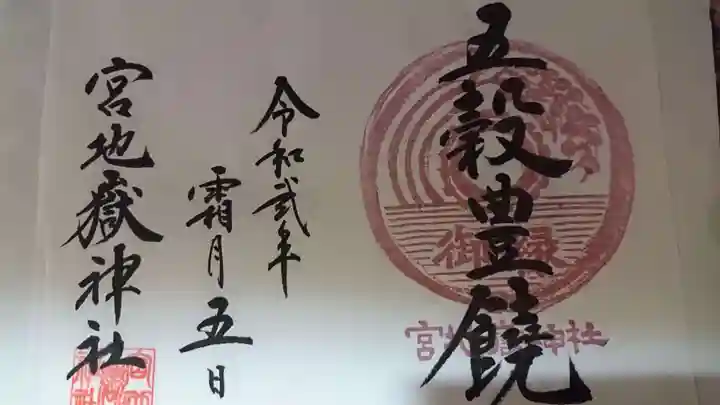 五穀豊饒
御縁
宮地嶽神社
令和弐年
霜月五日
宮地嶽神社